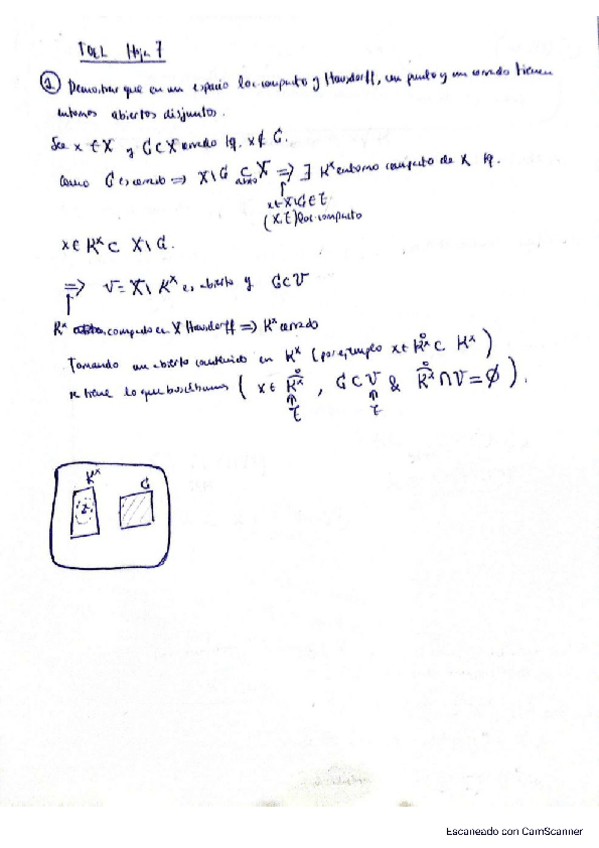 TOEL Hoja 7
① Demostrar que en un espacio loc. compacto y Hausdorff, un punto y un cerrado tienen
entornos abiertos disjuntos.
Sea x ∈ X y G ⊂ X cerrado tq. x ∉ G.
Como G es cerrado ⟹ X\G ⊂ X ⟹ ∃ Kˣ entorno compacto de x tq.
abierto
x ∈ X\G ∈ τ
(X,τ) loc. compacto
x ∈ Kˣ ⊂ X\G.
⟹ V = X\Kˣ es abierto y G ⊂ V
Kˣ compacto en X Hausdorff ⟹ Kˣ cerrado
Tomando un abierto contenido en Kˣ (por ejemplo x ∈ K̊ˣ ⊂ Kˣ)
se tiene lo que buscábamos (x ∈ K̊ˣ, G ⊂ V & K̊ˣ ∩ V = ∅).
τ τ
Kˣ G
x
Escaneado con CamScanner